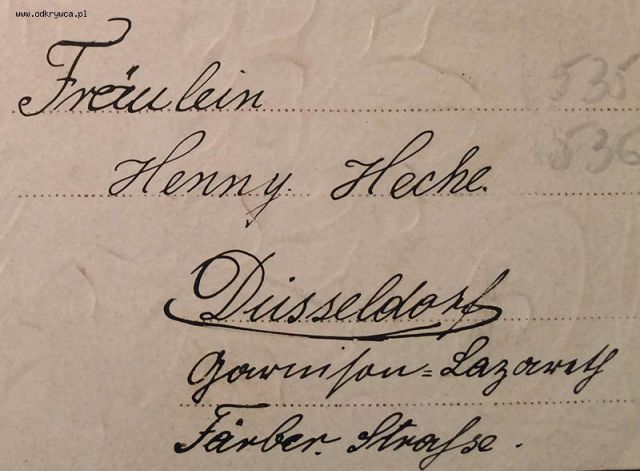 www.odkrywca.pl
Fräulein
535
Henny Heche.
536
Düsseldorf
Garnison=Lazareth
Färber. Straße.